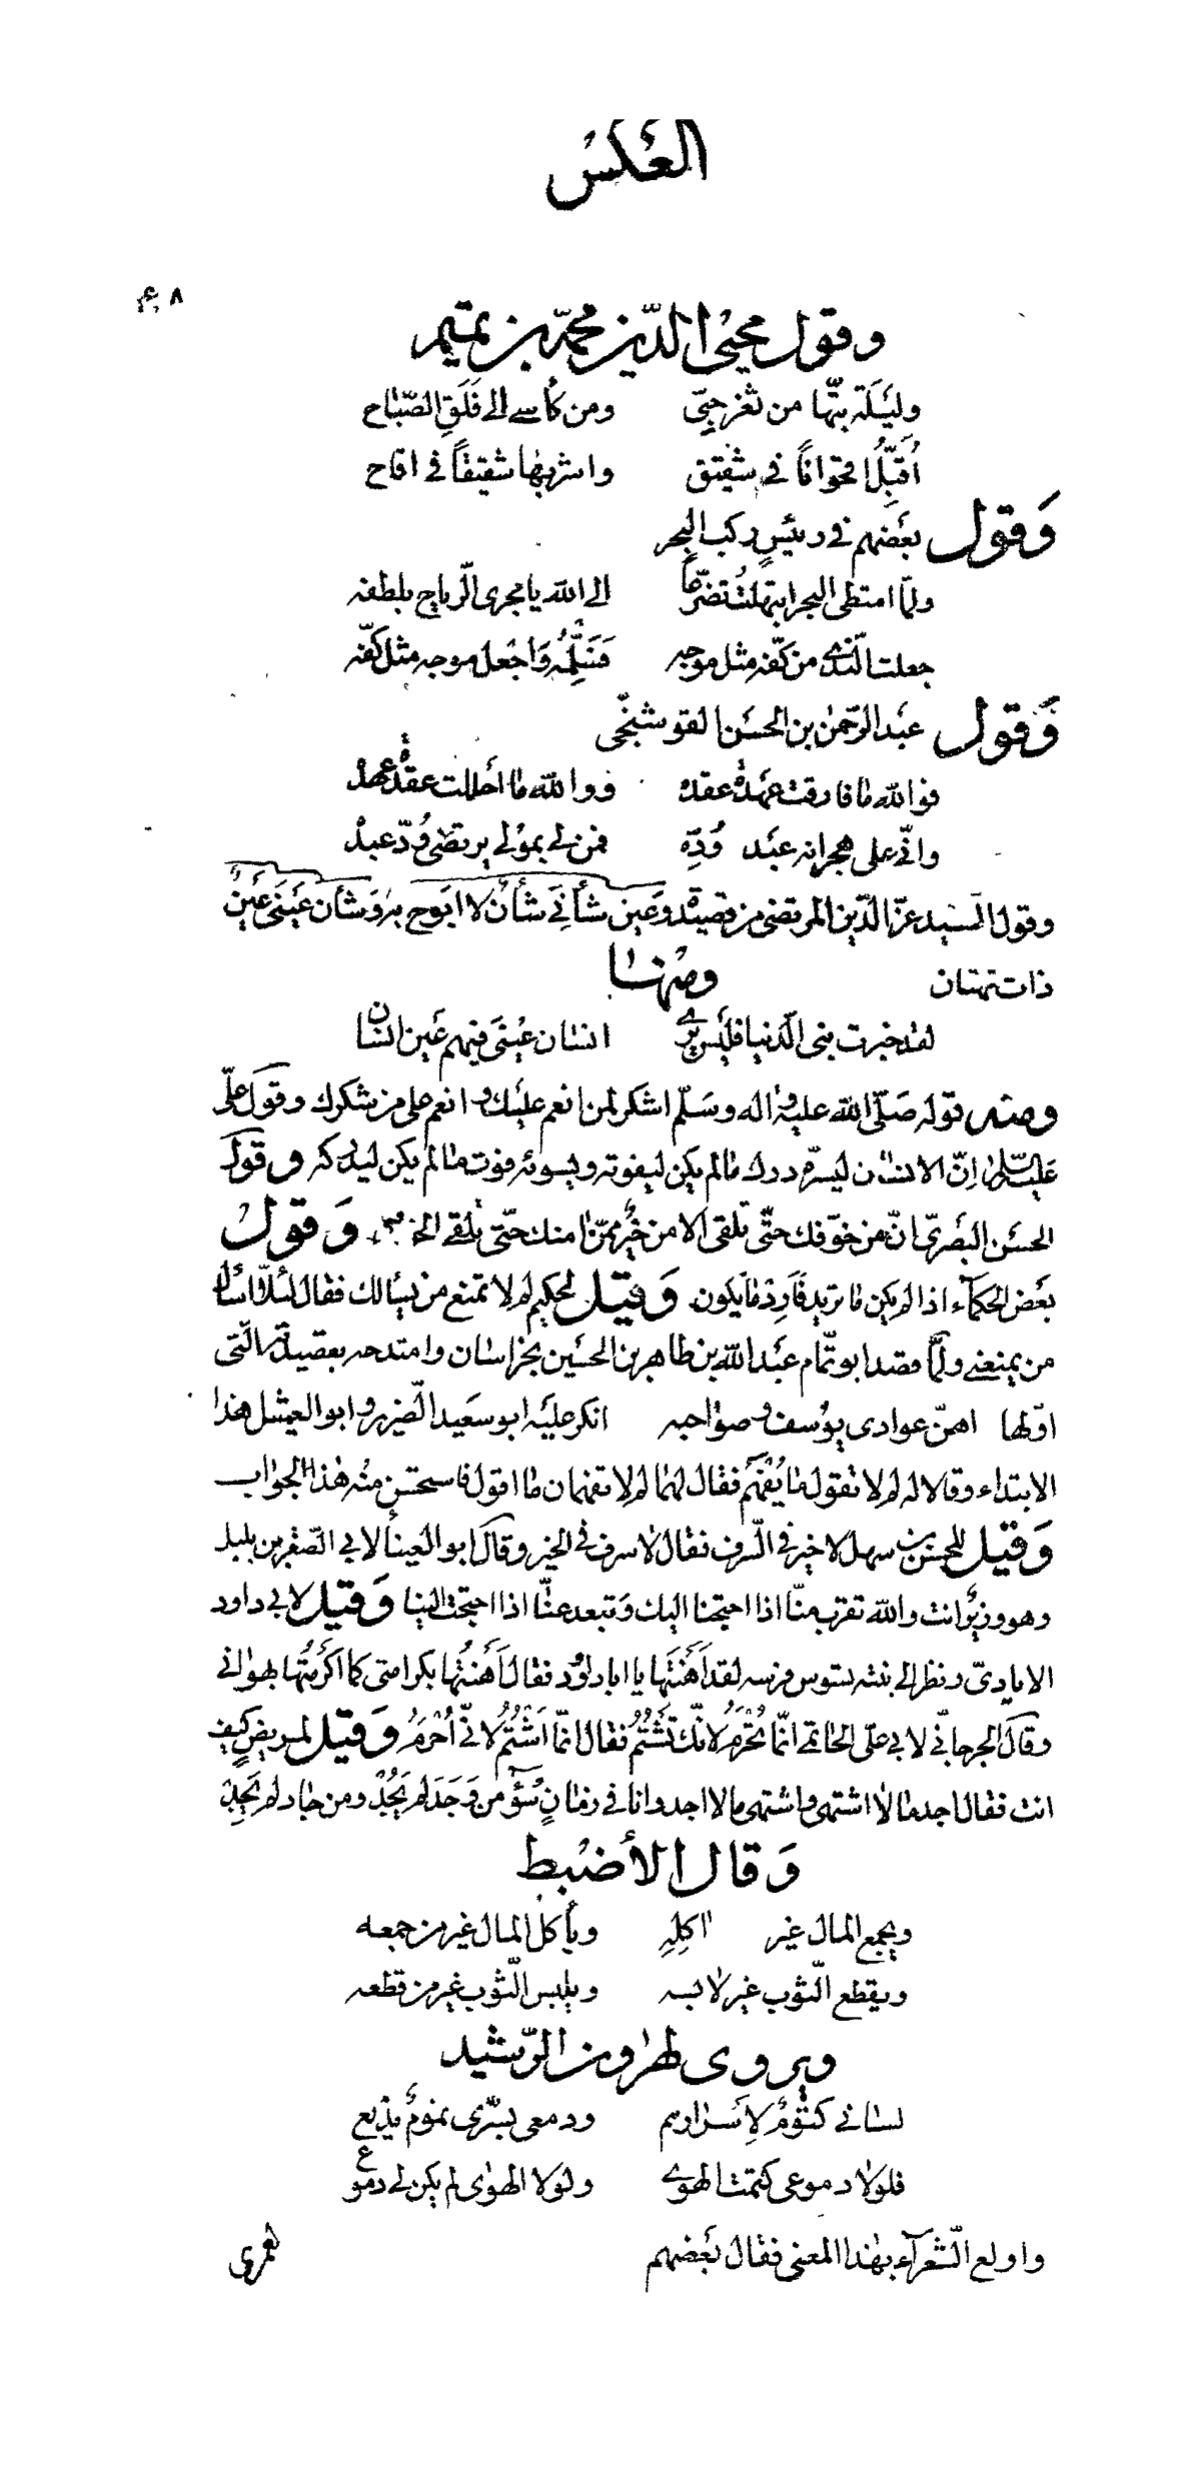 العكس
وقول محيى الدين محمد بن تميم
وليلة بتها من ثغر حبي ومن كأسي الى فلق الصباح
أقبل اقحوانا في شقيق واشربها شقيقا في اقاح
وقول بعضهم في رئيس ركب البحر
ولما امتطى البحر ابتهلت تضرعا الى الله يا مجرى الرياح بلطفه
جعلت الندى من كفه مثل موجه فسلمه واجعل موجه مثل كفه
وقول عبد الرحمن بن الحسن القوشنجي
فوالله ما فارقت عهدة عقده ووالله ما احللت عقدة عهده
واني على هجرانه عبد وده فمن لي بمولى يرتضى ود عبده
وقول السيد عز الدين المرتضى من قصيدة وعين شأني شأن لا ابوح به وشأن عينى عين
ذات تهتان ومنها
لقد خبرت بنى الدنيا فليس يرى انسان عينى فيهم عين انسان
ومنه قوله صلى الله عليه واله وسلم اشكر لمن انعم عليك وانعم على من شكرك وقول على
عليه السلم ان الانسان ليسره درك ما لم يكن ليفوته ويسوئه فوت ما لم يكن ليدركه وقول
الحسن البصرى ان من خوفك حتى تلقى الامن خير ممن امنك حتى تلقى وقول
بعض الحكماء اذا لم يكن ما تريد فأرد ما يكون وقيل لحكيم لم لا تمنع من يسألك فقال لئلا اسأل
من يمنعني ولما قصد ابو تمام عبد الله بن طاهر بن الحسين بخراسان وامتدحه بقصيدته التى
اولها اهن عوادى يوسف وصواحبه انكر عليه ابو سعيد الضرير وابو العيثل هذا
الابتداء وقالا له لم لا تقول ما يفهم فقال لهما لم لا تفهمان ما اقول فاستحسن منه هذا الجواب
وقيل للحسن بن سهل لا خير في السرف فقال لا سرف في الخير وقال ابو العينأ لابي الصقر بن بلبل
وهو وزير انت والله تقرب منا اذا احتجنا اليك وتبعد عنا اذا احتجت الينا وقيل لابي داود
الايادى ونظر الى بنته تسوس فرسه لقد أهنتها يا ابا داود فقال أهنتها بكرامتى كما اكرمتها بهواني
وقال الجرجاني لابي على الحاتمي انما تحرم لانك تشتم فقال انما أشتم لاني أحرم وقيل لمريض كيف
انت فقال اجد ما لا اشتهى واشتهى ما لا اجد وانا في زمان سوء من وجد لم يجد ومن جاد لم يجد
وقال الأضبط
ويجمع المال غير اكله ويأكل المال غير من جمعه
ويقطع الثوب غير لابسه ويلبس الثوب غير من قطعه
ويروى لهرون الرشيد
لسانى كتوم لأسراريم ودمعى بسرى نموم يذيع
فلولا دموعى كتمت الهوى ولولا الهوى لم يكن لي دموع
واولع الشعرآء بهذا المعنى فقال بعضهم لعمرى